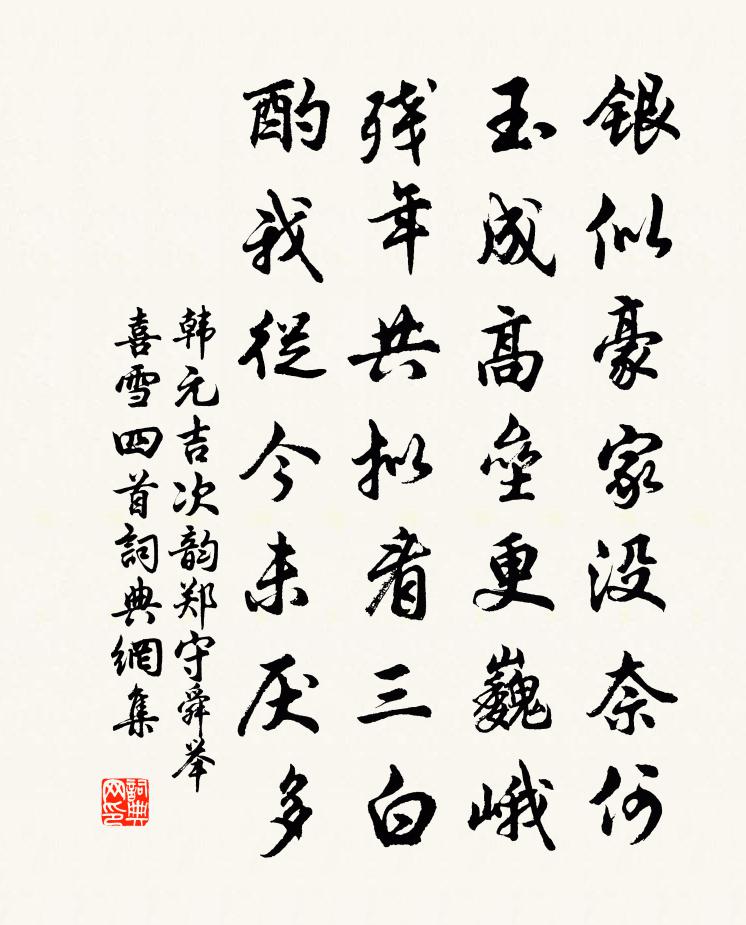 银似豪家没奈何
玉成高垒更巍峨
残年共拟看三白
酌我從今未厌多
韩元吉次韵郑守舜举
喜雪四首詞典網集
詞典网印